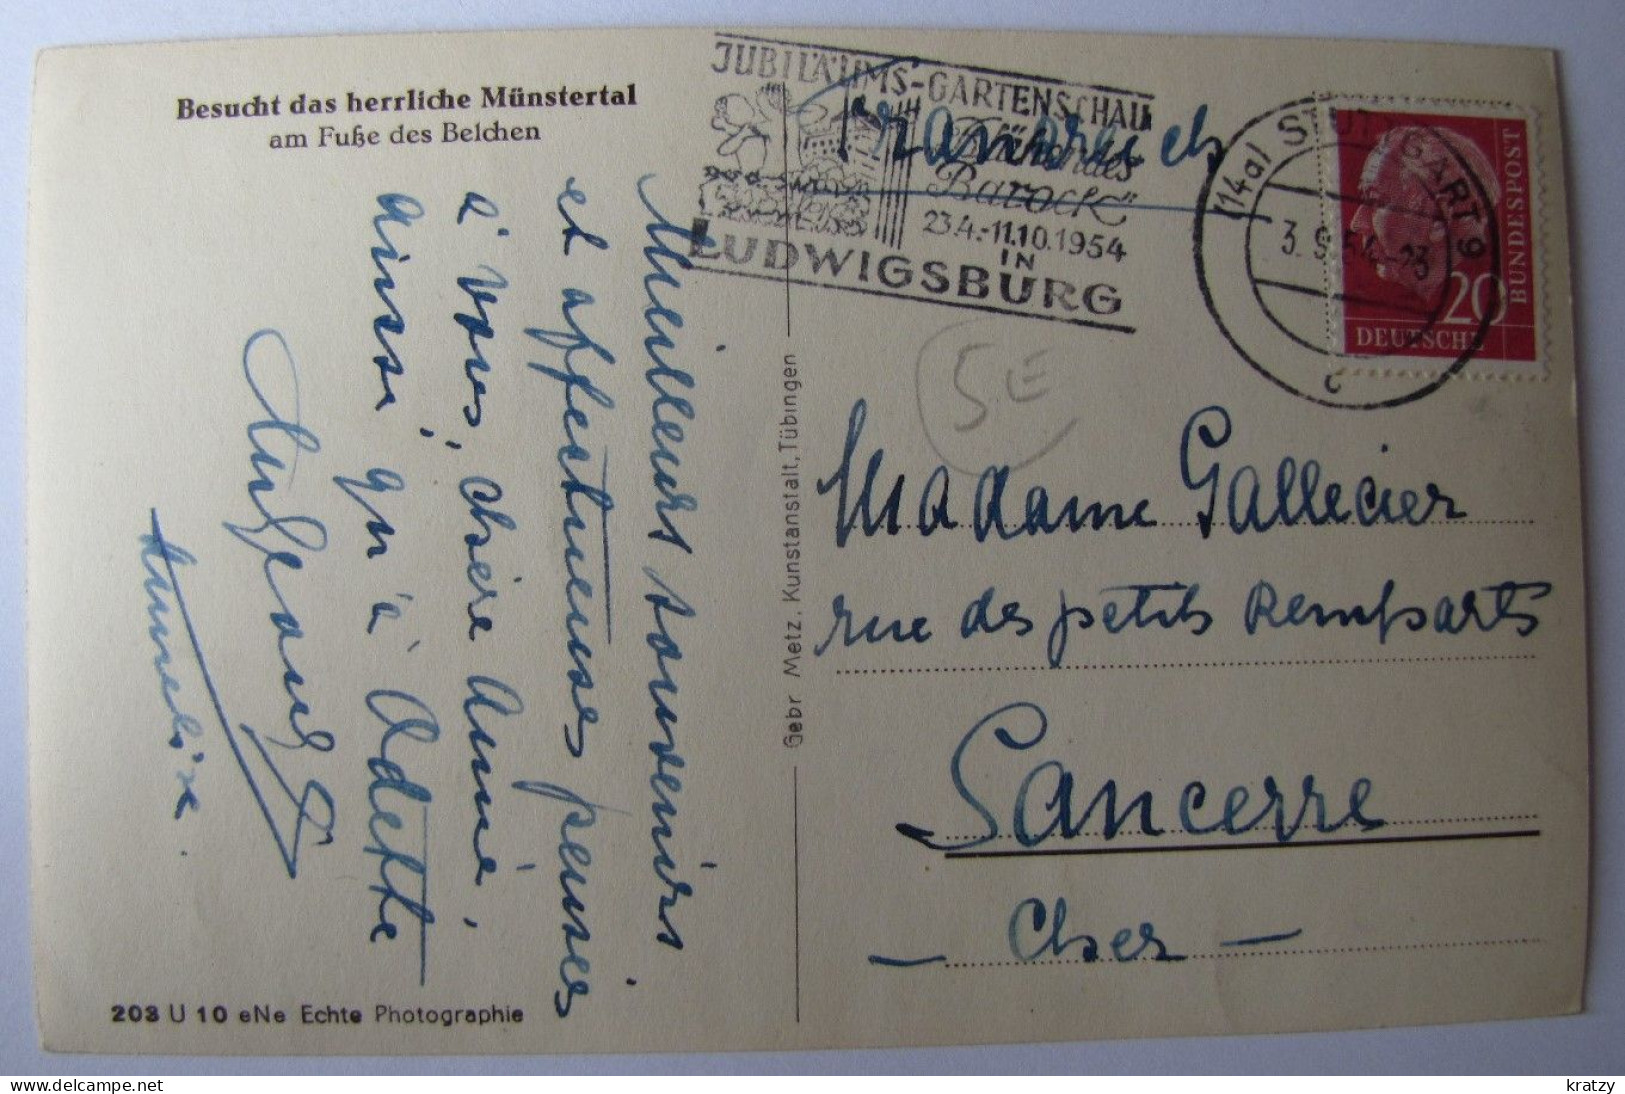 Besucht das herrliche Münstertal
am Fuße des Belchen
Meilleurs souvenirs
et affectueuses pensées
à vous, chère Aimée,
ainsi qu'à Odette
Annelise
203 U 10 eNe Echte Photographie
Gebr Metz, Kunstanstalt, Tübingen
JUBILÄUMS-GARTENSCHAU
"Blühendes
Barock"
23.4.-11.10.1954
IN
LUDWIGSBURG
Frankreich
(14a) STUTTGART 9
3.9.54.-23
c
20
DEUTSCHE
BUNDESPOST
5E
Madame Gallecier
rue des petits Remparts
Sancerre
- Cher -
kratzy